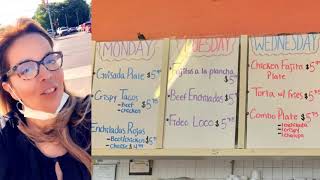 MONDAY
Guisada Plate $5.95
Crispy Tacos $5
- Beef
- chicken
Enchiladas Rojas
- Beef/chicken $5
- cheese $4.99
TUESDAY
Fajitas a la plancha $5
Beef Enchiladas $5
Fideo Loco $5
WEDNESDAY
Chicken Fajita Plate $5
Torta w/ fries $5
Combo Plate $5
- 1 enchilada
- 1 crispy
- 1 chalupa